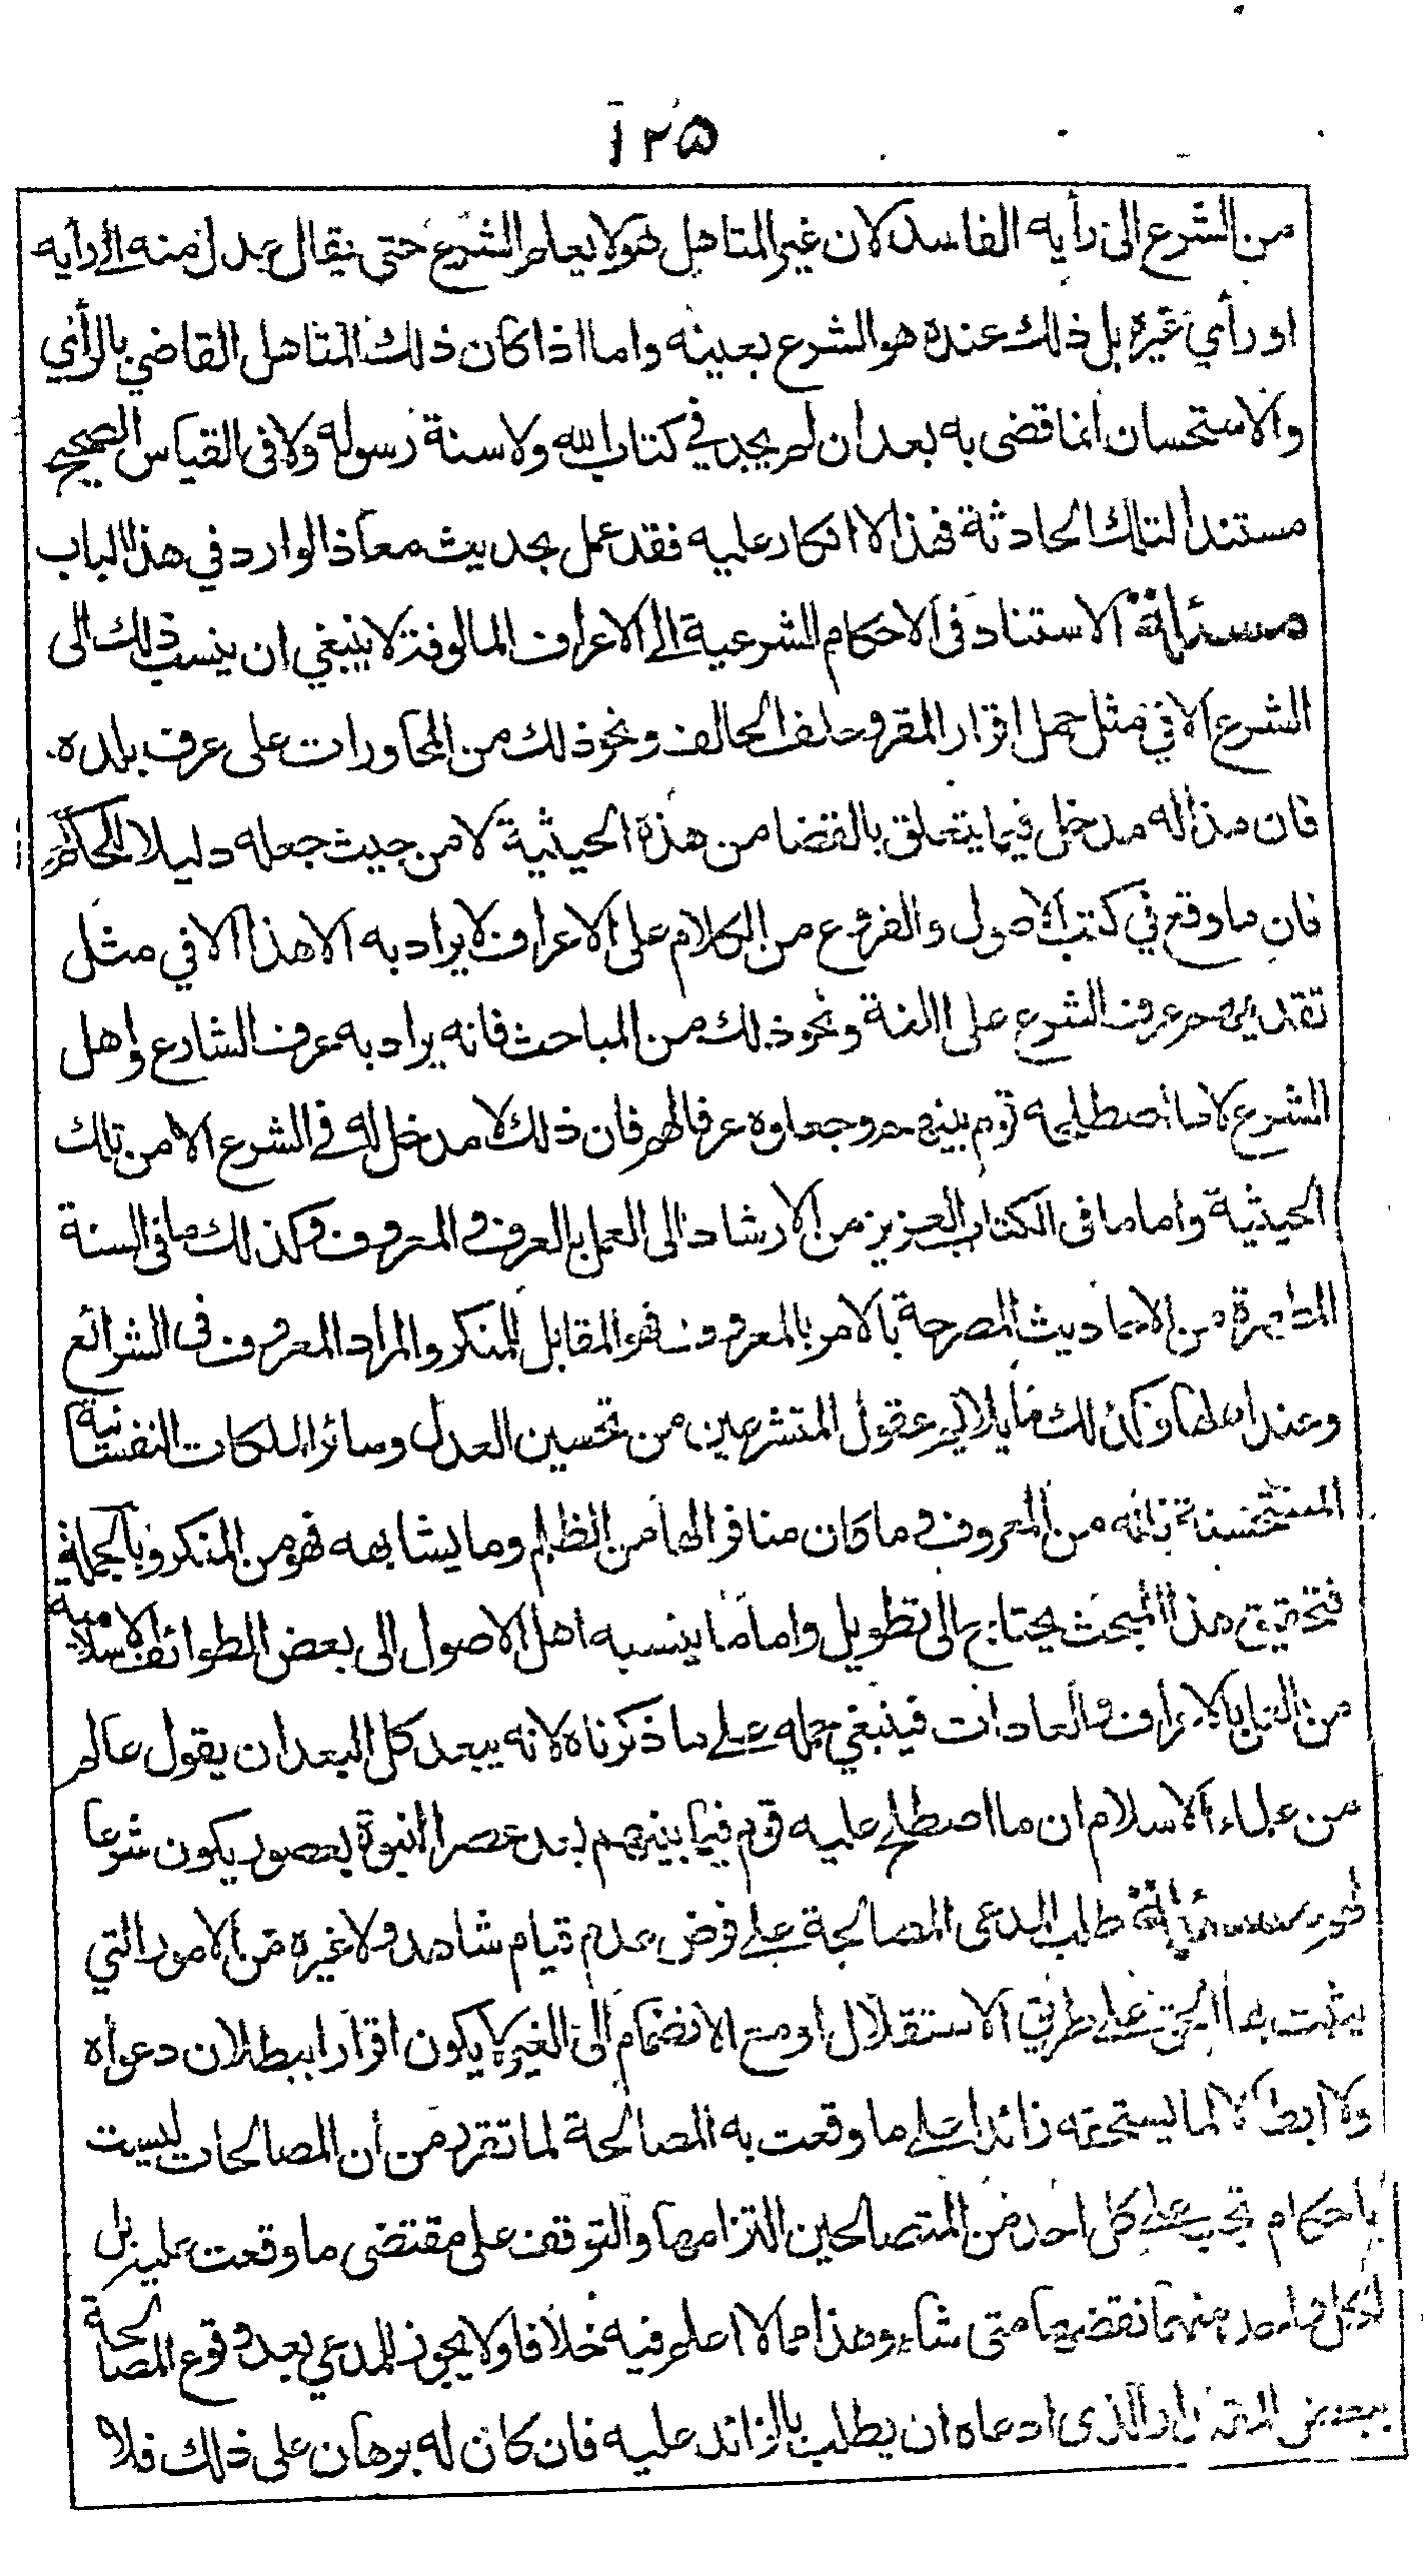 ١٢٥
من الشرع الى رأيه الفاسد لان غير المتاهل فهو لا يعلم الشرع حتى يقال عدل منه الى رأيه
او رأي غيره بل ذلك عنده هو الشرع بعينه واما اذا كان ذلك المتاهل القاضي بالرأي
والاستحسان انما قضى به بعد ان لم يجد في كتاب الله ولا سنة رسوله ولا فى القياس الصحيح
مستندا لتلك الحادثة فهذا لا انكار عليه فقد عمل بحديث معاذ الوارد في هذا الباب
مسئلة الاستناد فى الاحكام الشرعية الى الاعراف المالوفة لا ينبغي ان ينسب ذلك الى
الشرع الا في مثل حمل اقرار المقر وحلف الحالف ونحو ذلك من المحاورات على عرف بلده
فان هذا له مدخل فيما يتعلق بالقضا من هذه الحيثية لا من حيث جعله دليلا للحاكم
فان ما وقع في كتب الاصول والفروع من الكلام على الاعراف لا يراد به الا هذا الا في مثل
تقديمهم عرف الشرع على اللغة ونحو ذلك من المباحث فانه يراد به عرف الشارع واهل
الشرع لا ما اصطلح عليه قوم بينهم وجعلوه عرفا لهم فان ذلك لا مدخل له في الشرع الا من تلك
الحيثية واما ما فى الكتاب العزيز من الارشاد الى العمل بالعرف والمعروف وكذلك ما فى السنة
المطهرة من الاحاديث المصرحة بالامر بالمعروف فهو المقابل للمنكر والمراد المعروف فى الشرائع
وعند اهلها وكذلك ما يلائم عقول المتشرعين من تحسين العدل وسائر الملكات النفسانية
المستحسنة فانه من المعروف وما كان منافرا لها من الظلم وما يشابهه فهو من المنكر وبالجملة
فتحقيق هذا المبحث يحتاج الى تطويل واما ما ينسبه اهل الاصول الى بعض الطوائف الاسلامية
من العمل بالاعراف والعادات فينبغي حمله على ما ذكرناه لانه يبعد كل البعد ان يقول عالم
من علماء الاسلام ان ما اصطلح عليه قوم فيما بينهم بعد عصر النبوة بعصور يكون شرعا
لهم مسئلة طلب المدعى المصالحة على فرض عدم قيام شاهد ولا غيره من الامور التي
يثبت بها الحق على طريق الاستقلال او مع الانضمام الى الغير لا يكون اقرارا ببطلان دعواه
ولا ابطالا لما يستحقه زائدا على ما وقعت به المصالحة لما تقرر من أن المصالحات ليست
باحكام تجب على كل احد من المتصالحين التزامها والتوقف على مقتضى ما وقعت عليه بل
لكل واحد منهما نقضها متى شاء وهذا مما لا اعلم فيه خلافا ولا يجوز للمدعي بعد وقوع المصالحة
ببعض المقدار الذى ادعاه ان يطلب بالزائد عليه فان كان له برهان على ذلك فلا